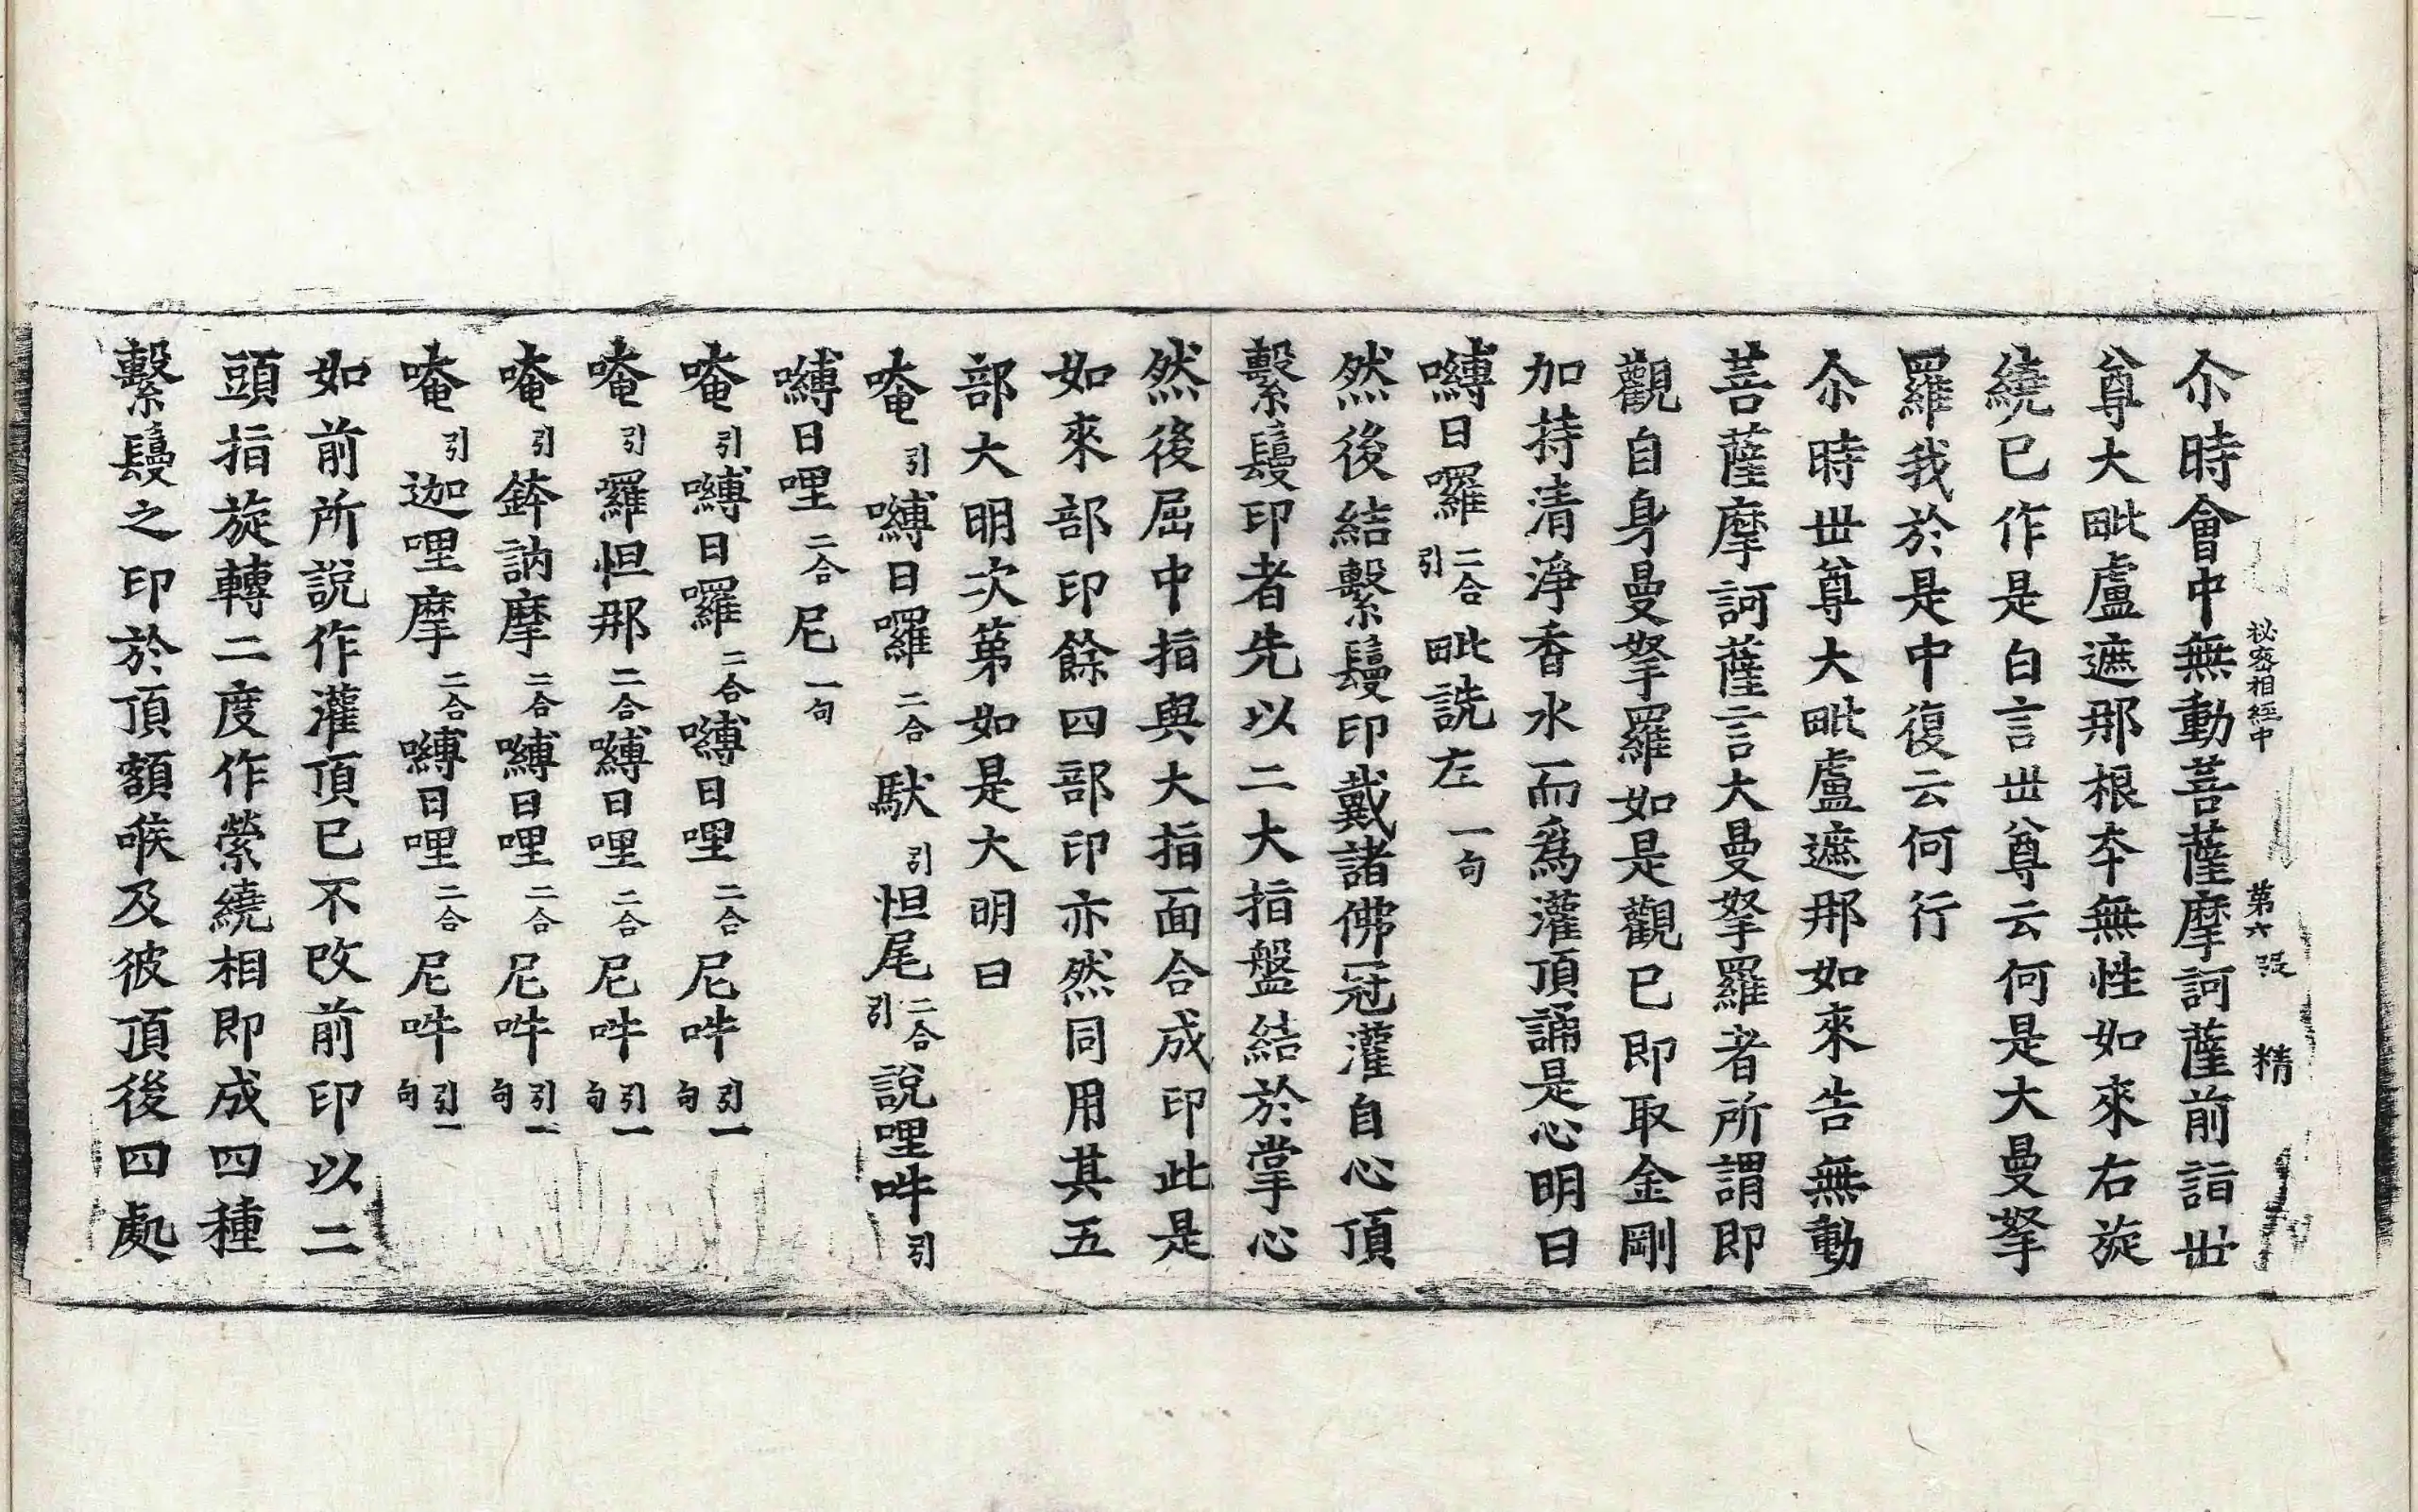 秘密相經中 第六張 精
尒時會中無動菩薩摩訶薩前詣世
尊大毗盧遮那根夲無性如來右旋
繞已作是白言世尊云何是大曼拏
羅我於是中復云何行
尒時世尊大毗盧遮那如來告無動
菩薩摩訶薩言大曼拏羅者所謂即
觀自身曼拏羅如是觀已即取金剛
加持清淨香水而爲灌頂誦是心明曰
嚩日囉二合引毗詵左一句
然後結繫鬘印戴諸佛冠灌自心頂
繫鬘印者先以二大指盤結於掌心
然後屈中指與大指面合成印此是
如來部印餘四部印亦然同用其五
部大明次第如是大明曰
唵引嚩日囉二合馱引怛尾二合引說哩吽引
嚩日哩二合尼一句
唵引嚩日囉二合嚩日哩二合尼吽引一句
唵引羅怛那二合嚩日哩二合尼吽引一句
唵引鉢訥摩二合嚩日哩二合尼吽引一句
唵引迦哩摩二合嚩日哩二合尼吽引一句
如前所說作灌頂已不改前印以二
頭指旋轉二度作縈繞相即成四種
繫鬘之印於頂額喉及彼頂後四處